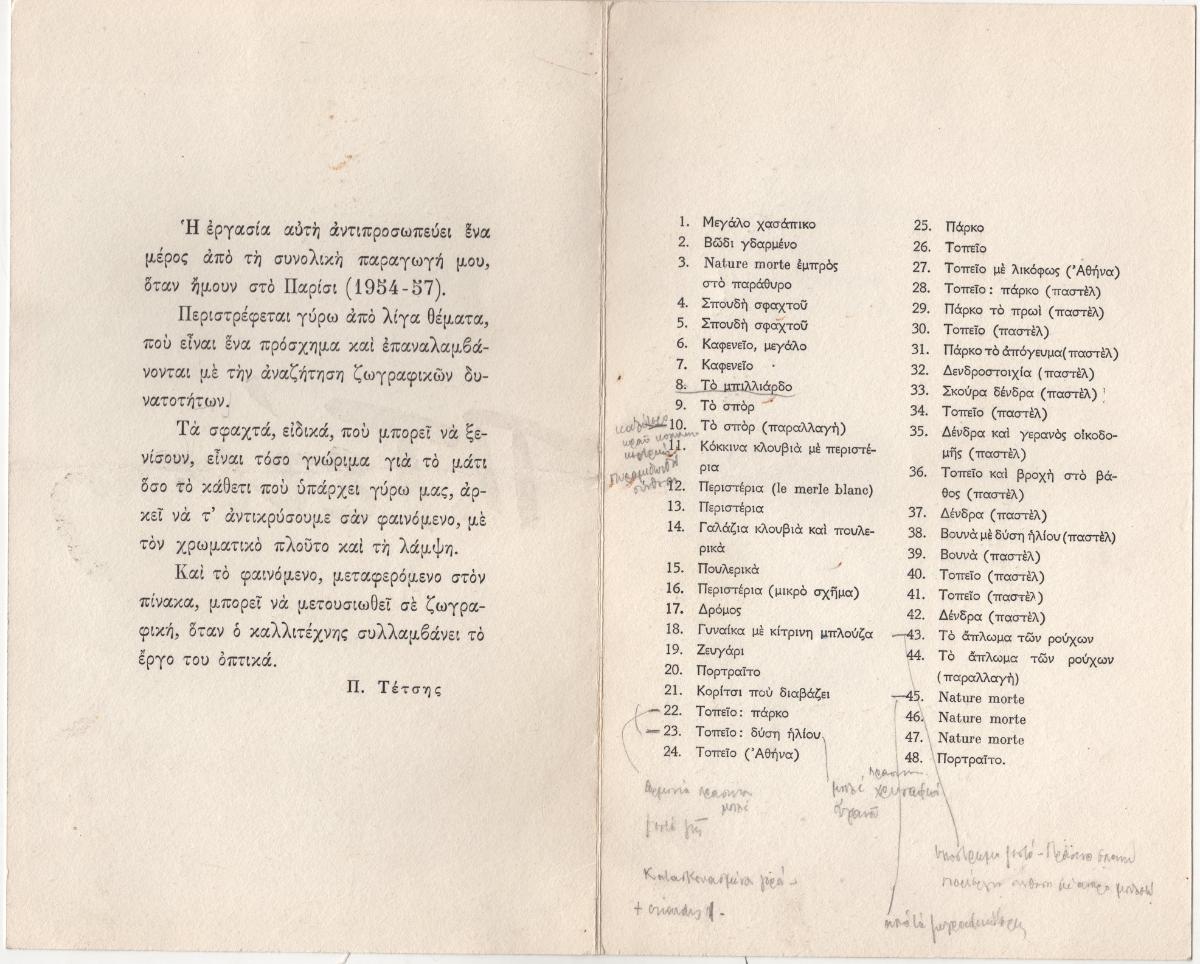 Ἡ ἐργασία αὐτὴ ἀντιπροσωπεύει ἕνα
μέρος ἀπὸ τὴ συνολικὴ παραγωγή μου,
ὅταν ἤμουν στὸ Παρίσι (1954-57).
Περιστρέφεται γύρω ἀπὸ λίγα θέματα,
ποὺ εἶναι ἕνα πρόσχημα καὶ ἐπαναλαμβά-
νονται μὲ τὴν ἀναζήτηση ζωγραφικῶν δυ-
νατοτήτων.
Τὰ σφαχτά, εἰδικά, ποὺ μπορεῖ νὰ ξε-
νίσουν, εἶναι τόσο γνώριμα γιὰ τὸ μάτι
ὅσο τὸ κάθετι ποὺ ὑπάρχει γύρω μας, ἀρ-
κεῖ νὰ τ' ἀντικρύσουμε σὰν φαινόμενο, μὲ
τὸν χρωματικὸ πλοῦτο καὶ τὴ λάμψη.
Καὶ τὸ φαινόμενο, μεταφερόμενο στὸν
πίνακα, μπορεῖ νὰ μετουσιωθεῖ σὲ ζωγρα-
φική, ὅταν ὁ καλλιτέχνης συλλαμβάνει τὸ
ἔργο του ὀπτικά.
Π. Τέτσης
1. Μεγάλο χασάπικο
2. Βῶδι γδαρμένο
3. Nature morte ἐμπρὸς
στὸ παράθυρο
4. Σπουδὴ σφαχτοῦ
5. Σπουδὴ σφαχτοῦ
6. Καφενεῖο, μεγάλο
7. Καφενεῖο
8. Τὸ μπιλλιάρδο
9. Τὸ σπὸρ
10. Τὸ σπὸρ (παραλλαγὴ)
11. Κόκκινα κλουβιὰ μὲ περιστέ-
ρια
12. Περιστέρια (le merle blanc)
13. Περιστέρια
14. Γαλάζια κλουβιὰ καὶ πουλε-
ρικὰ
15. Πουλερικὰ
16. Περιστέρια (μικρὸ σχῆμα)
17. Δρόμος
18. Γυναίκα μὲ κίτρινη μπλούζα
19. Ζευγάρι
20. Πορτραῖτο
21. Κορίτσι ποὺ διαβάζει
22. Τοπεῖο: πάρκο
23. Τοπεῖο: δύση ἡλίου
24. Τοπεῖο (Ἀθήνα)
25. Πάρκο
26. Τοπεῖο
27. Τοπεῖο μὲ λικόφως (Ἀθήνα)
28. Τοπεῖο: πάρκο (παστὲλ)
29. Πάρκο τὸ πρωῒ (παστὲλ)
30. Τοπεῖο (παστὲλ)
31. Πάρκο τὸ ἀπόγευμα (παστὲλ)
32. Δενδροστοιχία (παστὲλ)
33. Σκούρα δένδρα (παστὲλ)
34. Τοπεῖο (παστὲλ)
35. Δένδρα καὶ γερανὸς οἰκοδο-
μῆς (παστὲλ)
36. Τοπεῖο καὶ βροχὴ στὸ βά-
θος (παστὲλ)
37. Δένδρα (παστὲλ)
38. Βουνὰ μὲ δύση ἡλίου (παστὲλ)
39. Βουνὰ (παστὲλ)
40. Τοπεῖο (παστὲλ)
41. Τοπεῖο (παστὲλ)
42. Δένδρα (παστὲλ)
43. Τὸ ἄπλωμα τῶν ρούχων
44. Τὸ ἄπλωμα τῶν ρούχων
(παραλλαγὴ)
45. Nature morte
46. Nature morte
47. Nature morte
48. Πορτραῖτο.